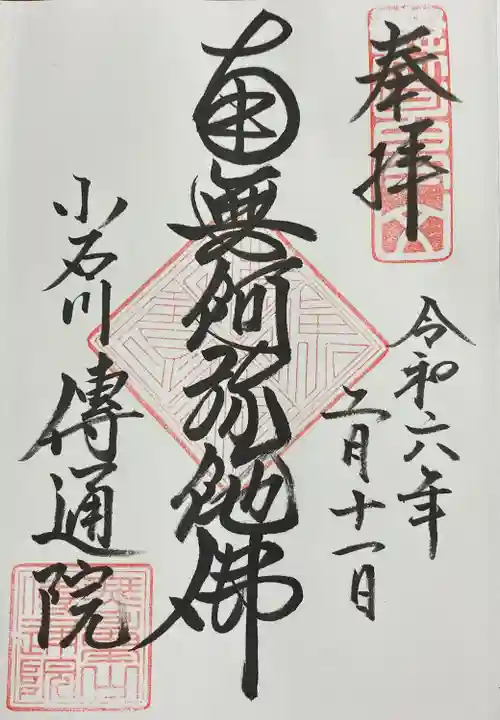 奉拝
令和六年
二月十一日
南無阿弥陀佛
小石川
傳通院